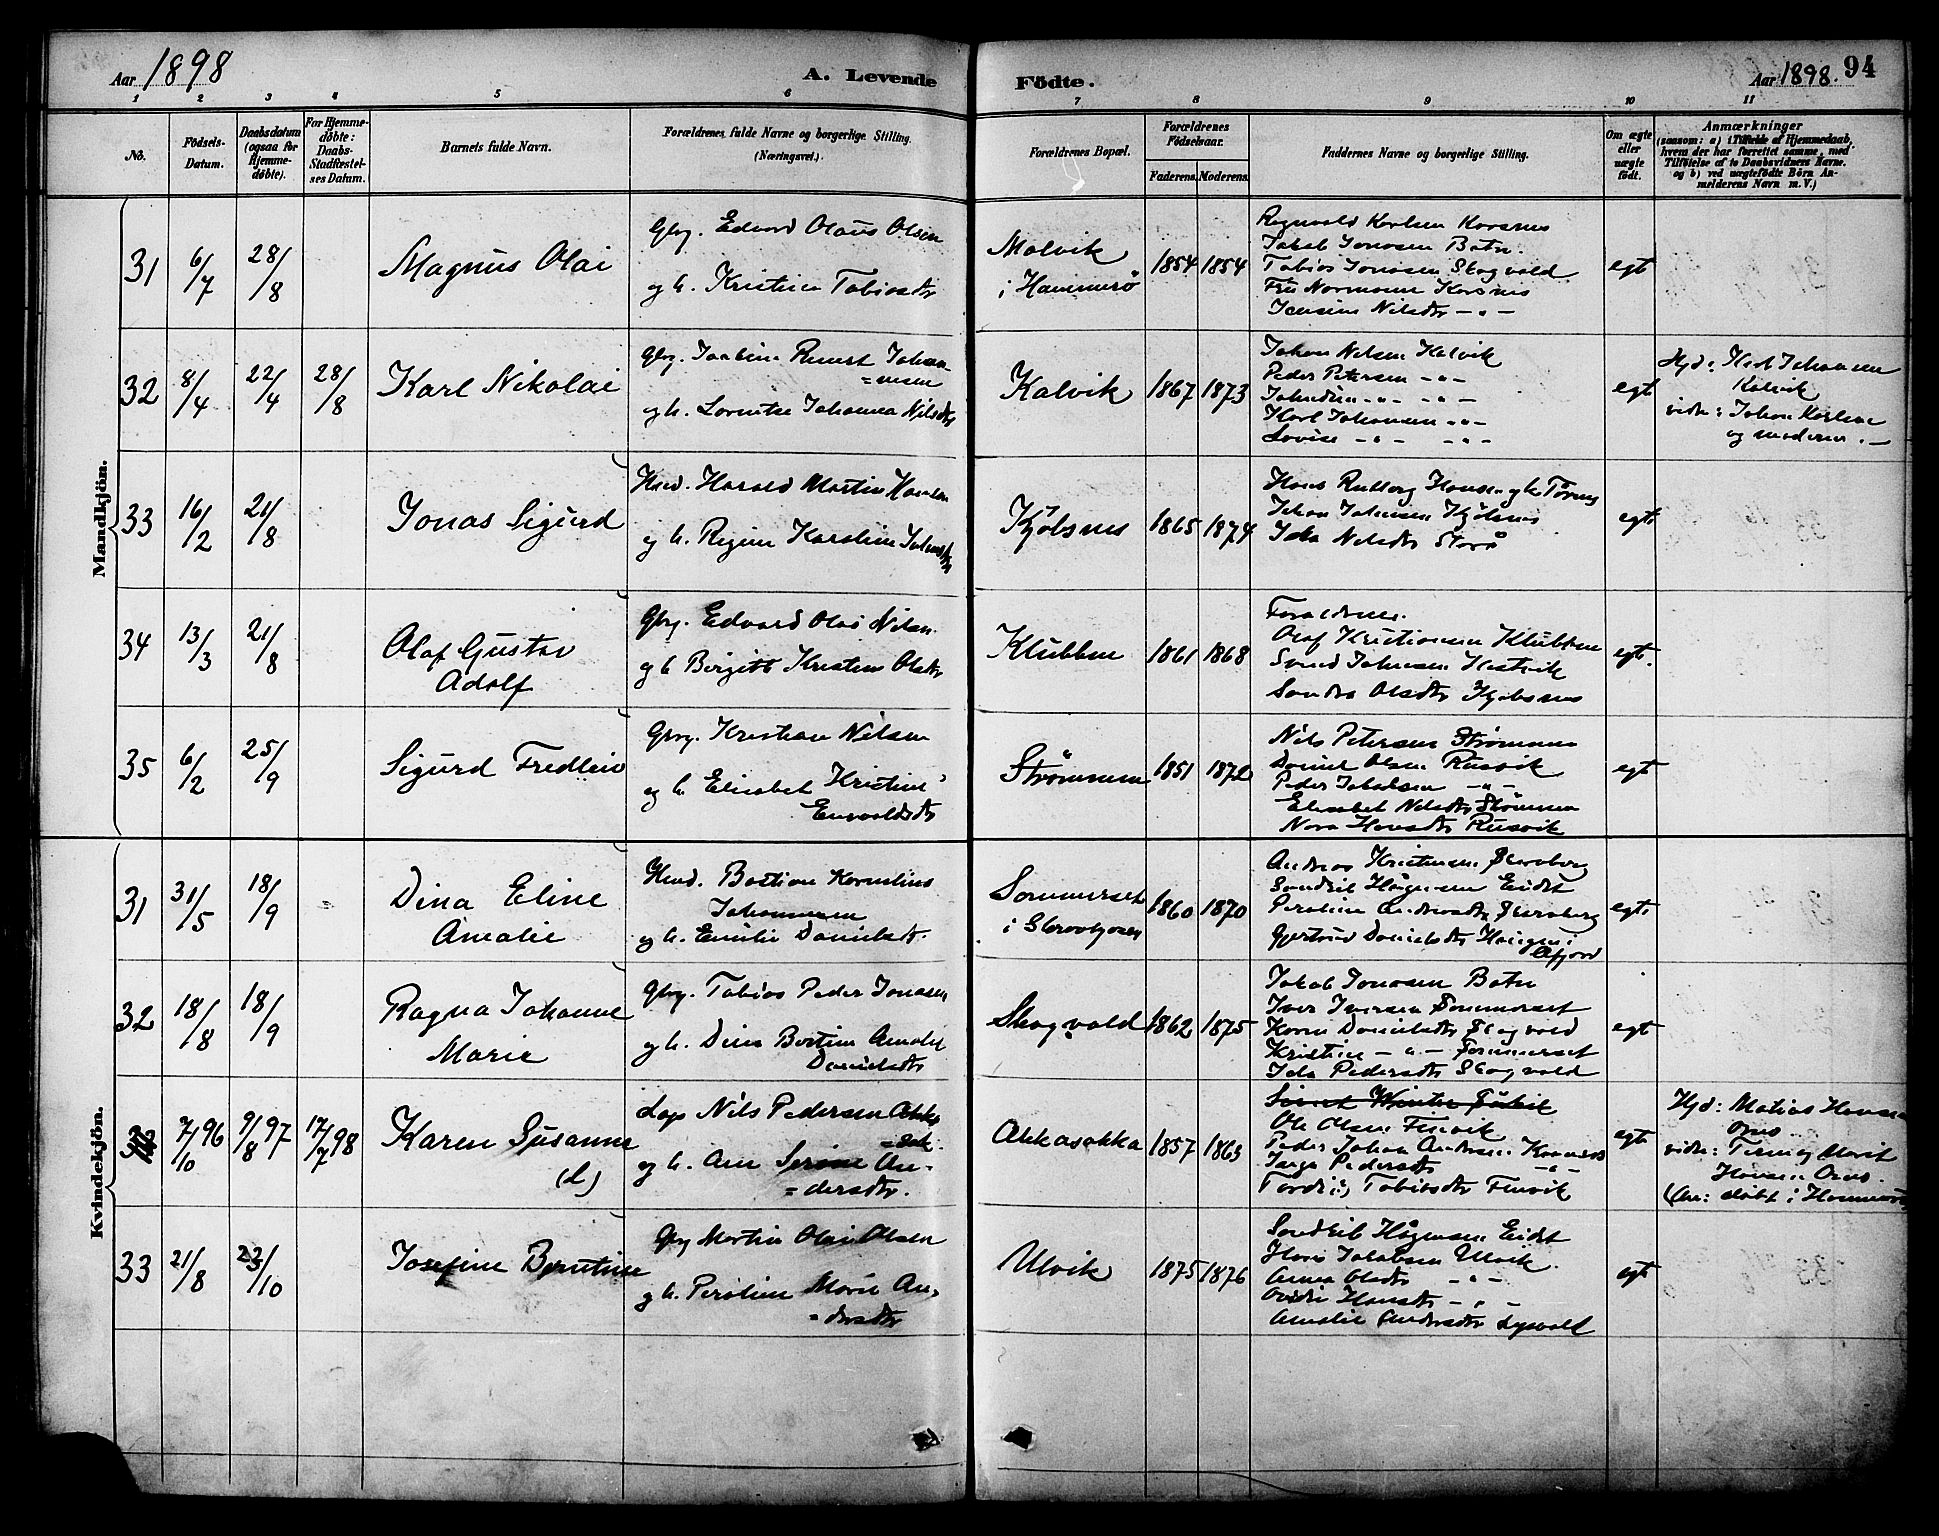 Aar 1898
A. Levende
Födte.
Aar 1898. 94
1 2 3 4 5 6 7 8 9 10 11
No.
Födsels-Datum.
Daabsdatum (ogsaa for Hjemme-döbte).
For Hjemme-döbte: Daabs-Stadfæstel-ses Datum.
Barnets fulde Navn.
Forældrenes fulde Navne og borgerlige Stilling. (Næringsvei.)
Forældrenes Bopæl.
Forældrenes Födselsaar.
Faderens. Moderens.
Faddernes Navne og borgerlige Stilling.
Om ægte eller uægte födt.
Anmærkninger
(saasom: a) i Tilfælde af Hjemmedaab,
hvem der har forrettet samme, med
Tilföielse af to Daabsvidners Navne.
og b) ved uægtefödte Börn An-
melderens Navn m. V.)
Mandkjön.
31 6/7 28/8 Magnus Olai
Gbr. Edvard Olaus Olsen
og h. Kristina Tobiasdtr
Malvik
i Hammerö
1854 1854
Ragnvald Karlsen Korsnes
Jakob Jonasen Botn.
Tobias Jonasen Skogvold
Fru Normann Korsnes
Jensine Nilsdtr - " -
egt
32 8/4 22/4 28/8 Karl Nikolai
Johan-
=nesen
og h. Lorentse Johanna Nilsdtr
Kalvik
1867 1873
Johan Nilsen Kalvik
Peder Petersen - " -
Karl Johansen - " -
Lovise - " - - " -
egt
Hjd: Karl Johansen
Kalvik
vidn: Johan Karlsen
og moderen. -
33 16/2 21/8 Jonas Sigurd
Harald Martin
og h. Regine Karoline
Kjöbsnes
1865 1874
Johan Johansen Kjöbsnes
Ida Nilsdtr Storå
egt.
34 13/3 21/8 Olaf Gustav
Adolf
Gbr. Edvard Olai Nilsen
og h Bergitte Kristine Olsdtr
Klubben
1861 1868
Forældrene.
Olaf Kristiansen Klubben
Olsdtr Kjöbsnes
egt.
35 6/2 25/9 Sigurd Fredlein
Gbr. Kristian Nilsen
og h. Elisabet Kristine
Envoldsdtr
Strömmen
1851 1872
Nils Petersen Strömmen
Daniel Olsen Rusvik
Peder Jakobsen - " -
Elisabet Nilsdtr Strömmen
Nora Hansdtr Rusvik
egt
Kvindekjön.
31 31/5 18/9 Dina Eline
Amalie
Bastian Kornelius
Johannesen
og h. Emilie Danielsdtr.
Sommerset
i
1860 1870
Andreas Kristensen
Sandril Hågensen Eidet
Peroline Andreasdtr
Gjertrud Danielsdtr Haugen i
egt.
32 18/8 18/9 Ragna Johanne
Marie
Gbr. Tobias Peder Jonasen
og h. Dina Bertine Amalie
Danielsdtr
Skogvold
1862 1875
Jakob Jonasen Botn
Iver Iversen Sommerset
Karen Danielsdtr Skogvold
Kristine - " - Sommerset
Ida Pedersdtr Skogvold
egt
7/10 96 9/8 97 17/7 98 Karen Susanne
(L)
Lap Nils Pedersen Akka
og h. Ane An-
=dersdtr.
Akkasokka
1857 1863
Ole Olsen Finvik
Peder Johan Andersen
Inga Pedersdtr - " -
Tobiasdtr Finvik
egt
Hjd: Matias Hansen
vidn:
33 21/8 23/10 Josefine Berntine
Gbr Martin Olai Olsen
og h. Peroline Marie An-
=dersdtr
Ulvik
1875 1876
Sandril Hågensen Eidet
Hans Jakobsen Ulvik.
Anna Olsdtr - " -
Hansdtr - " -
Amalie Andersdtr
egt